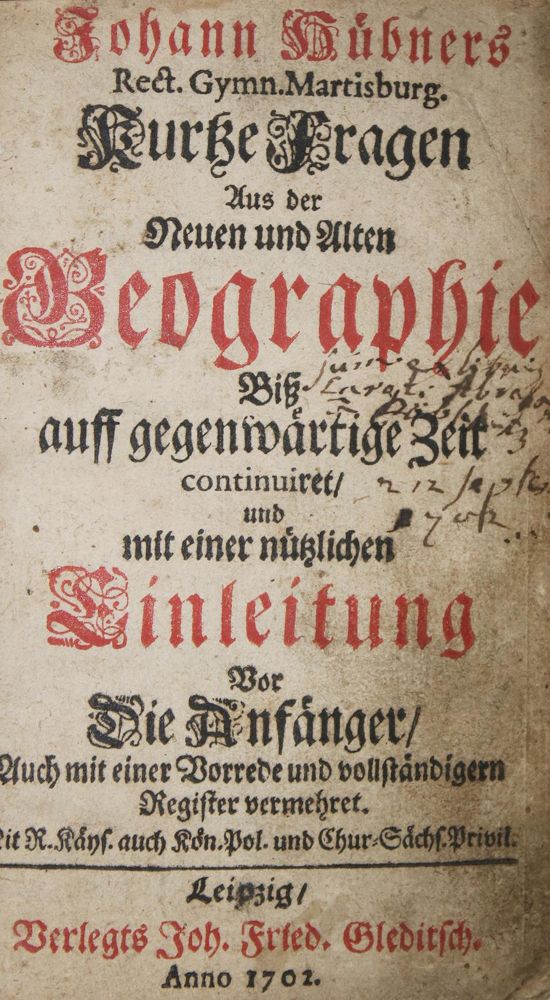 Johann Hübners
Rect. Gymn. Martisburg.
Kurtze Fragen
Aus der
Neuen und Alten
Geographie
Biß
auff gegenwärtige Zeit
continuiret/
und
mit einer nützlichen
Einleitung
Vor
Die Anfänger/
Auch mit einer Vorrede und vollständigern
Register vermehret.
R. Käys. auch Kön. Pol. und Chur-Sächs. Privil.
Leipzig/
Verlegts Joh. Fried. Gleditsch.
Anno 1702.